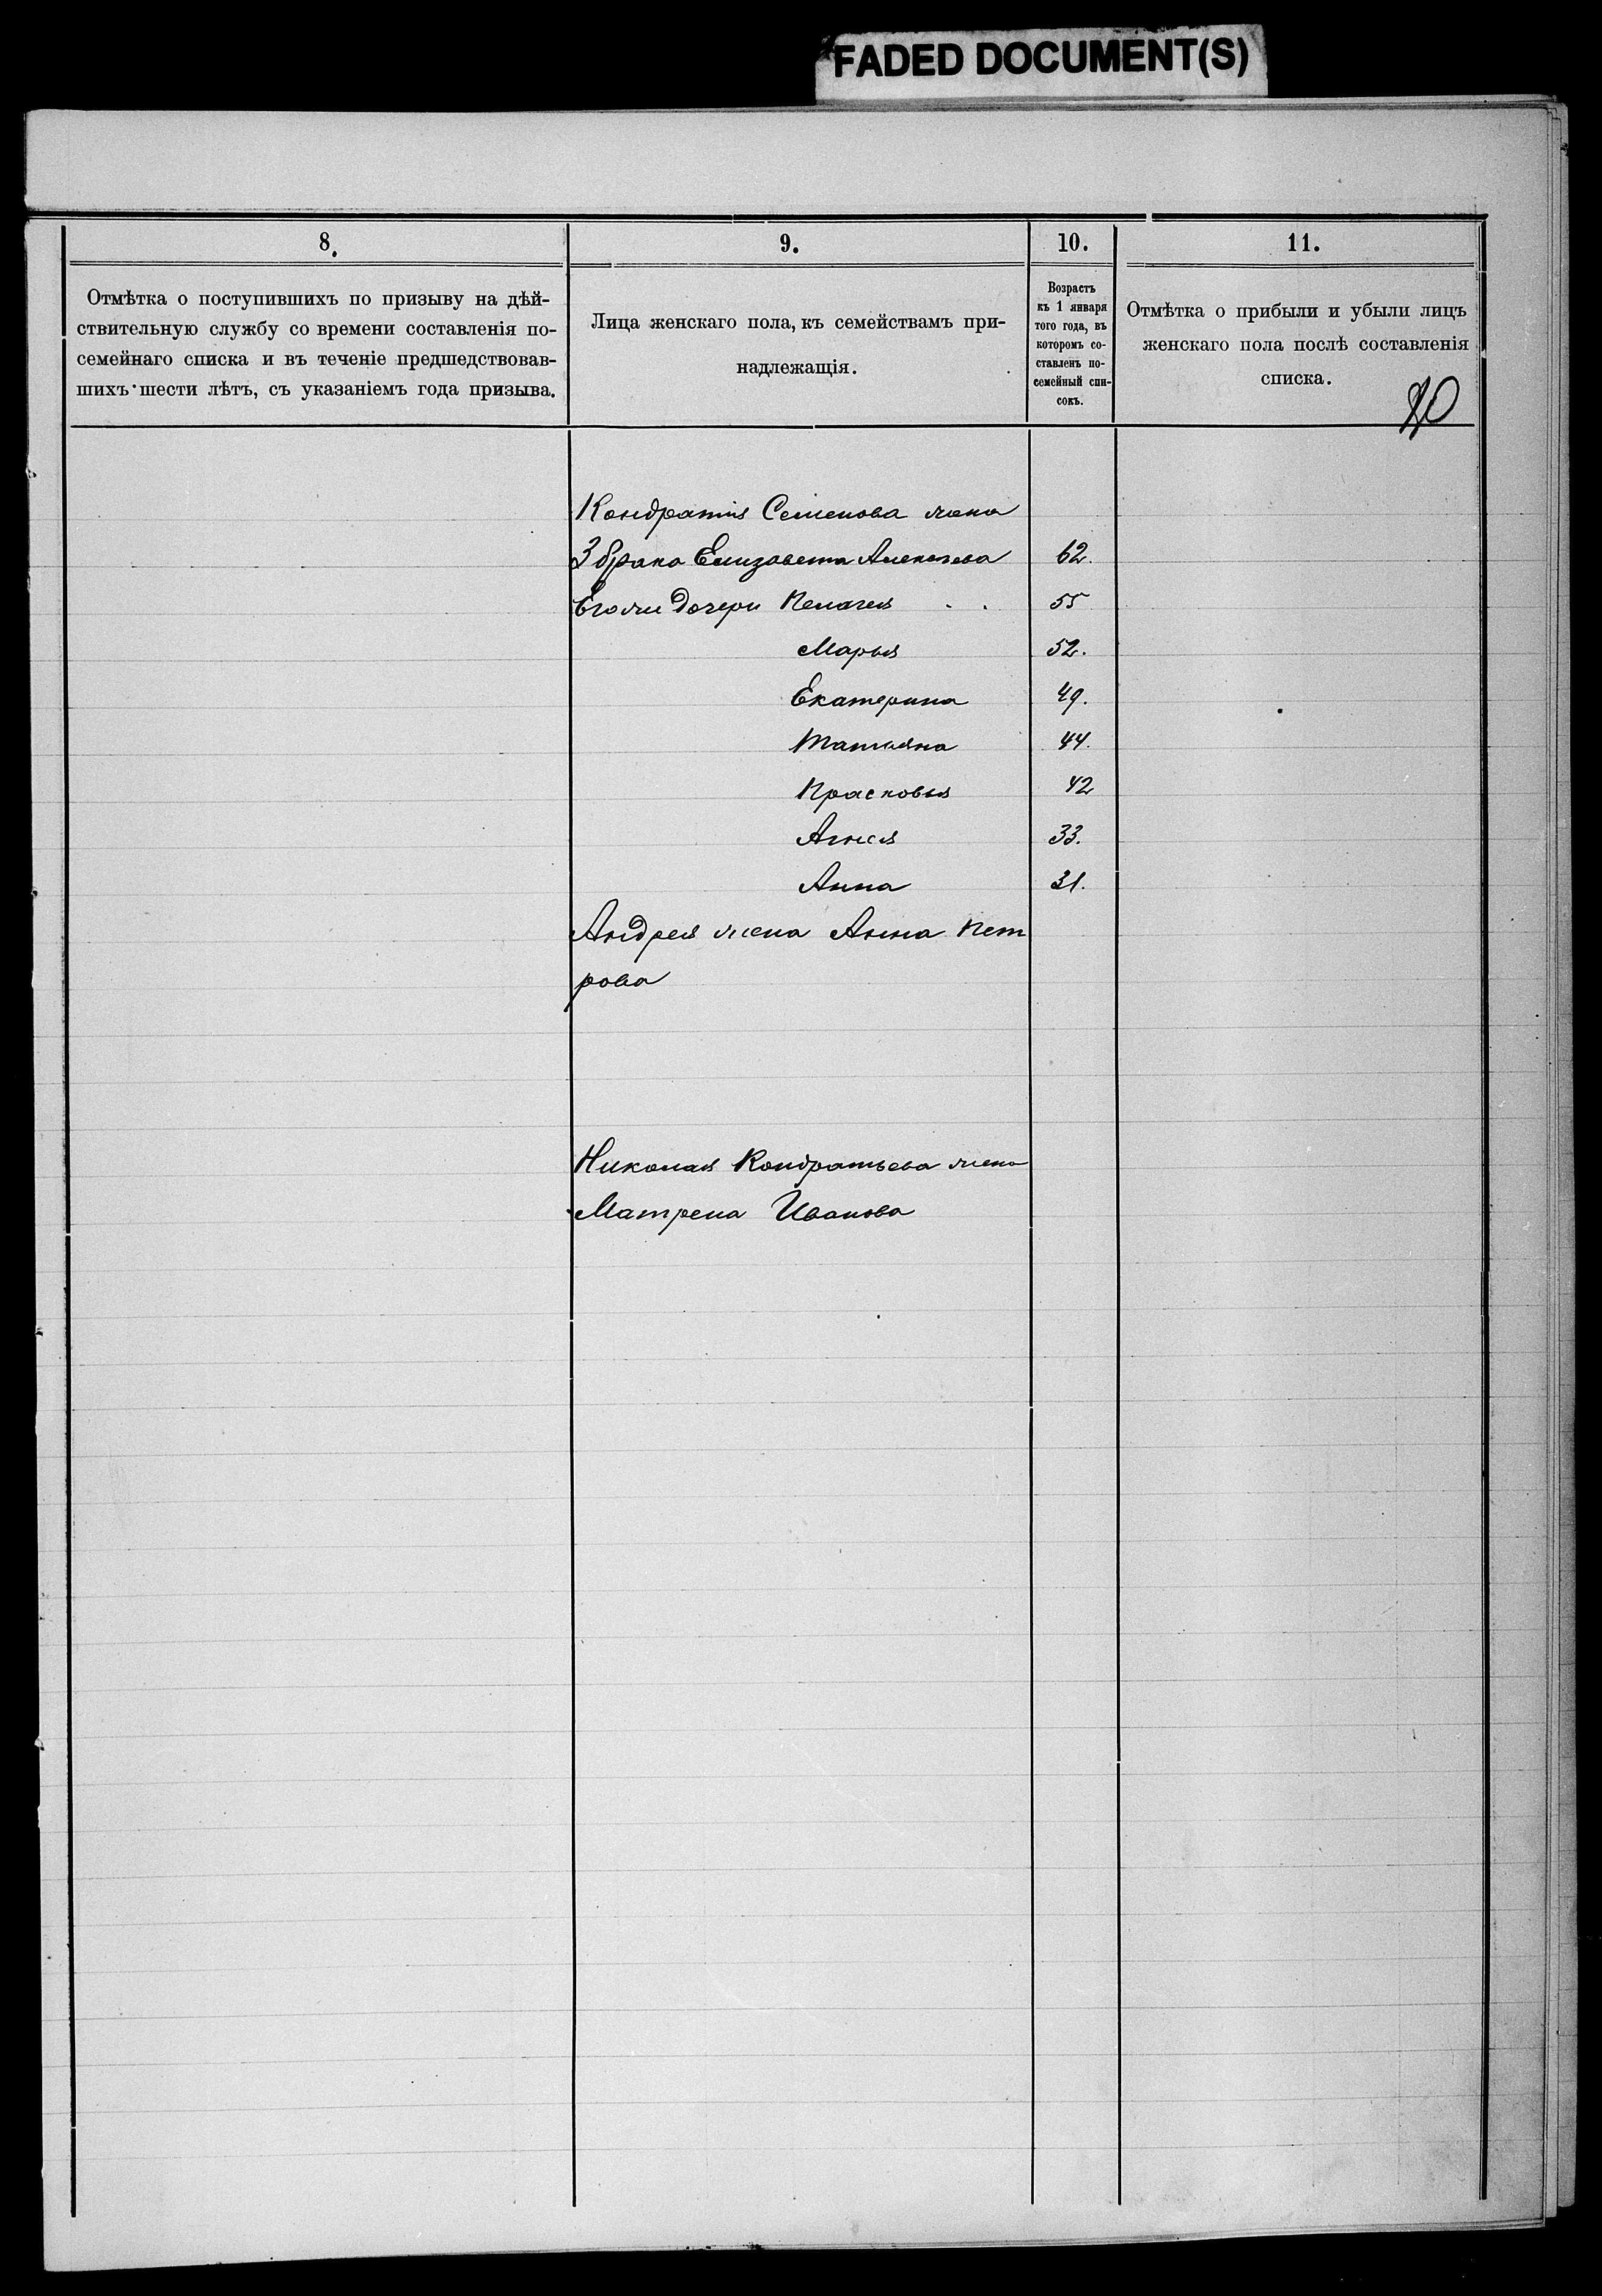 FADED DOCUMENT(S)
8.
Отмѣтка о поступившихъ по призыву на дѣй-
ствительную службу со времени составленія по-
семейнаго списка и въ теченіе предшедствовав-
шихъ шести лѣтъ, съ указаніемъ года призыва.
9.
Лица женскаго пола, къ семействамъ при-
надлежащія.
10.
Возрастъ
къ 1 января
того года, въ
которомъ со-
ставленъ по-
семейный спи-
сокъ.
11.
Отмѣтка о прибыли и убыли лицъ
женскаго пола послѣ составленія
списка.
Кондратія Семенова жена
3 брака Елизавета Алексѣева 62.
Его же дочери Пелагея . . 55
Марья 52.
Екатерина 49.
Татьяна 44.
Прасковья 42
Агнея 33.
Анна 31.
Андрея жена Анна Пет
рова
Николая Кондратьева жена
Матрена Иванова